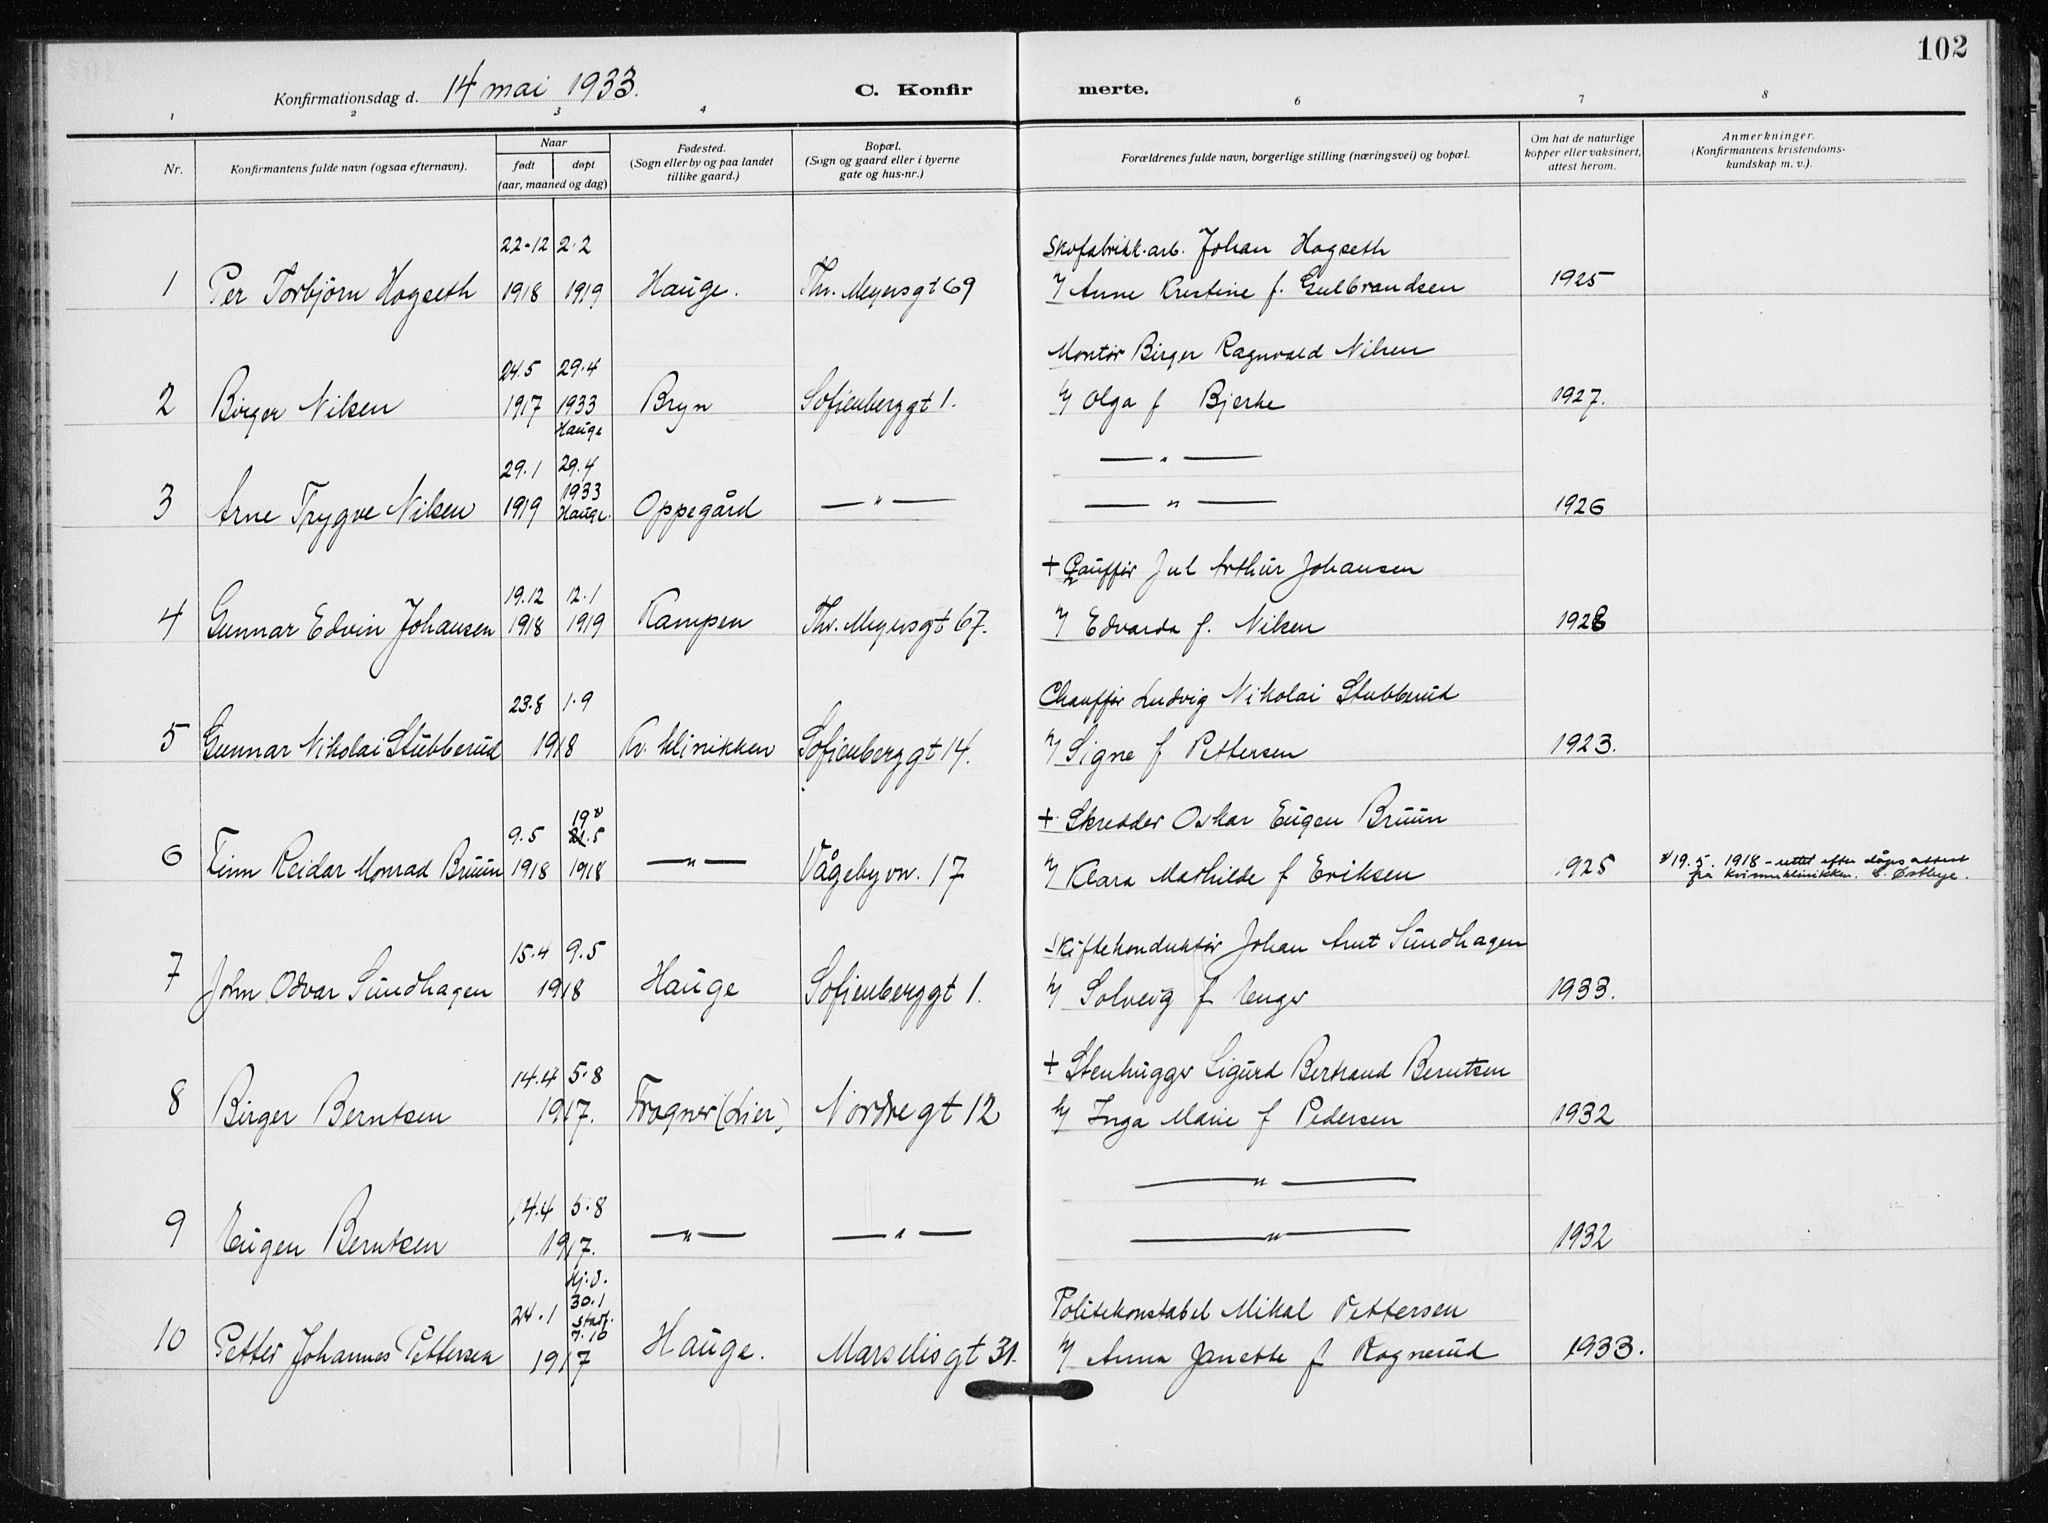 102
Konfirmationsdag d. 14 mai 1933.
C. Konfirmerte.
1 2 3 4 6 7 8
Nr.
Konfirmantens fulde navn (ogsaa efternavn).
Naar
født døpt
(aar, maaned og dag)
Fødested.
(Sogn eller by og paa landet
tillike gaard.)
Bopæl.
(Sogn og gaard eller i byerne
gate og hus-nr.)
Forældrenes fulde navn, borgerlige stilling (næringsvei) og bopæl.
Om hat de naturlige
kopper eller vaksinert,
attest herom.
Anmerkninger.
(Konfirmantens kristendoms-
kundskap m. v.).
22-12 2.2 Skofabrikk.arb. Johan Hogseth
1 Per Torbjørn Hogseth 1918 1919 Hauge. Thv. Meyersgt 69 y Anne Kristine f. Gulbrandsen 1925
24.5 29.4 Montør Birger Ragnvald Nilsen
2 Birger Nilsen 1917 1933 Bryn Sofienberggt 1. y Olga f Bjerke 1927.
Hauge
29.1 29.4 — " —
3 Arne Trygve Nilsen 1919 1933 Oppegård — " — — " — 1926
Hauge.
19.12 12.1 + Chauffør Jul Arthur Johansen
4 Gunnar Edvin Johansen 1918 1919 Kampen Thv. Meyersgt 67. y Edvarda f. Nilsen 1928
23.8 1.9 Chauffør Ludvig Nikolai Stubberud
5 Gunnar Nikolai Stubberud 1918 Kv. klinikken Sofienberggt 14. y Signe f Pettersen 1923.
19
9.5 21.5 + Skredder Oskar Eugen Bruun
6 Finn Reidar Monrad Bruun 1918 1918 — " — Vågebyvn. 17 y Klara Mathilde f Eriksen 1925 19.5. 1918 - rettet efter dåpsattest
fra Kvinneklinikken. C. Østbye.
15.4 9.5 Skiftekonduktør Johan Arnt Sundhagen
7 John Odvar Sundhagen 1918 Hauge Sofienberggt 1. y Solveig f Unger 1933.
14.4 5.8 + Stenhugger Sigurd Bertrand Berntsen
8 Birger Berntsen 1917. Frogner (Lier) Nordregt 12 y Inga Marie f Pedersen 1932
14.4 5.8 — " —
9 Eugen Berntsen 1917. — " — — " — — " — 1932
Hj.d.
30.1
24.1 stadf. Politikonstabel Mikal Pettersen
7.10
10 Petter Johannes Pettersen 1917 Hauge. Marselisgt 31. y Anna Janette f Rognerud 1933.